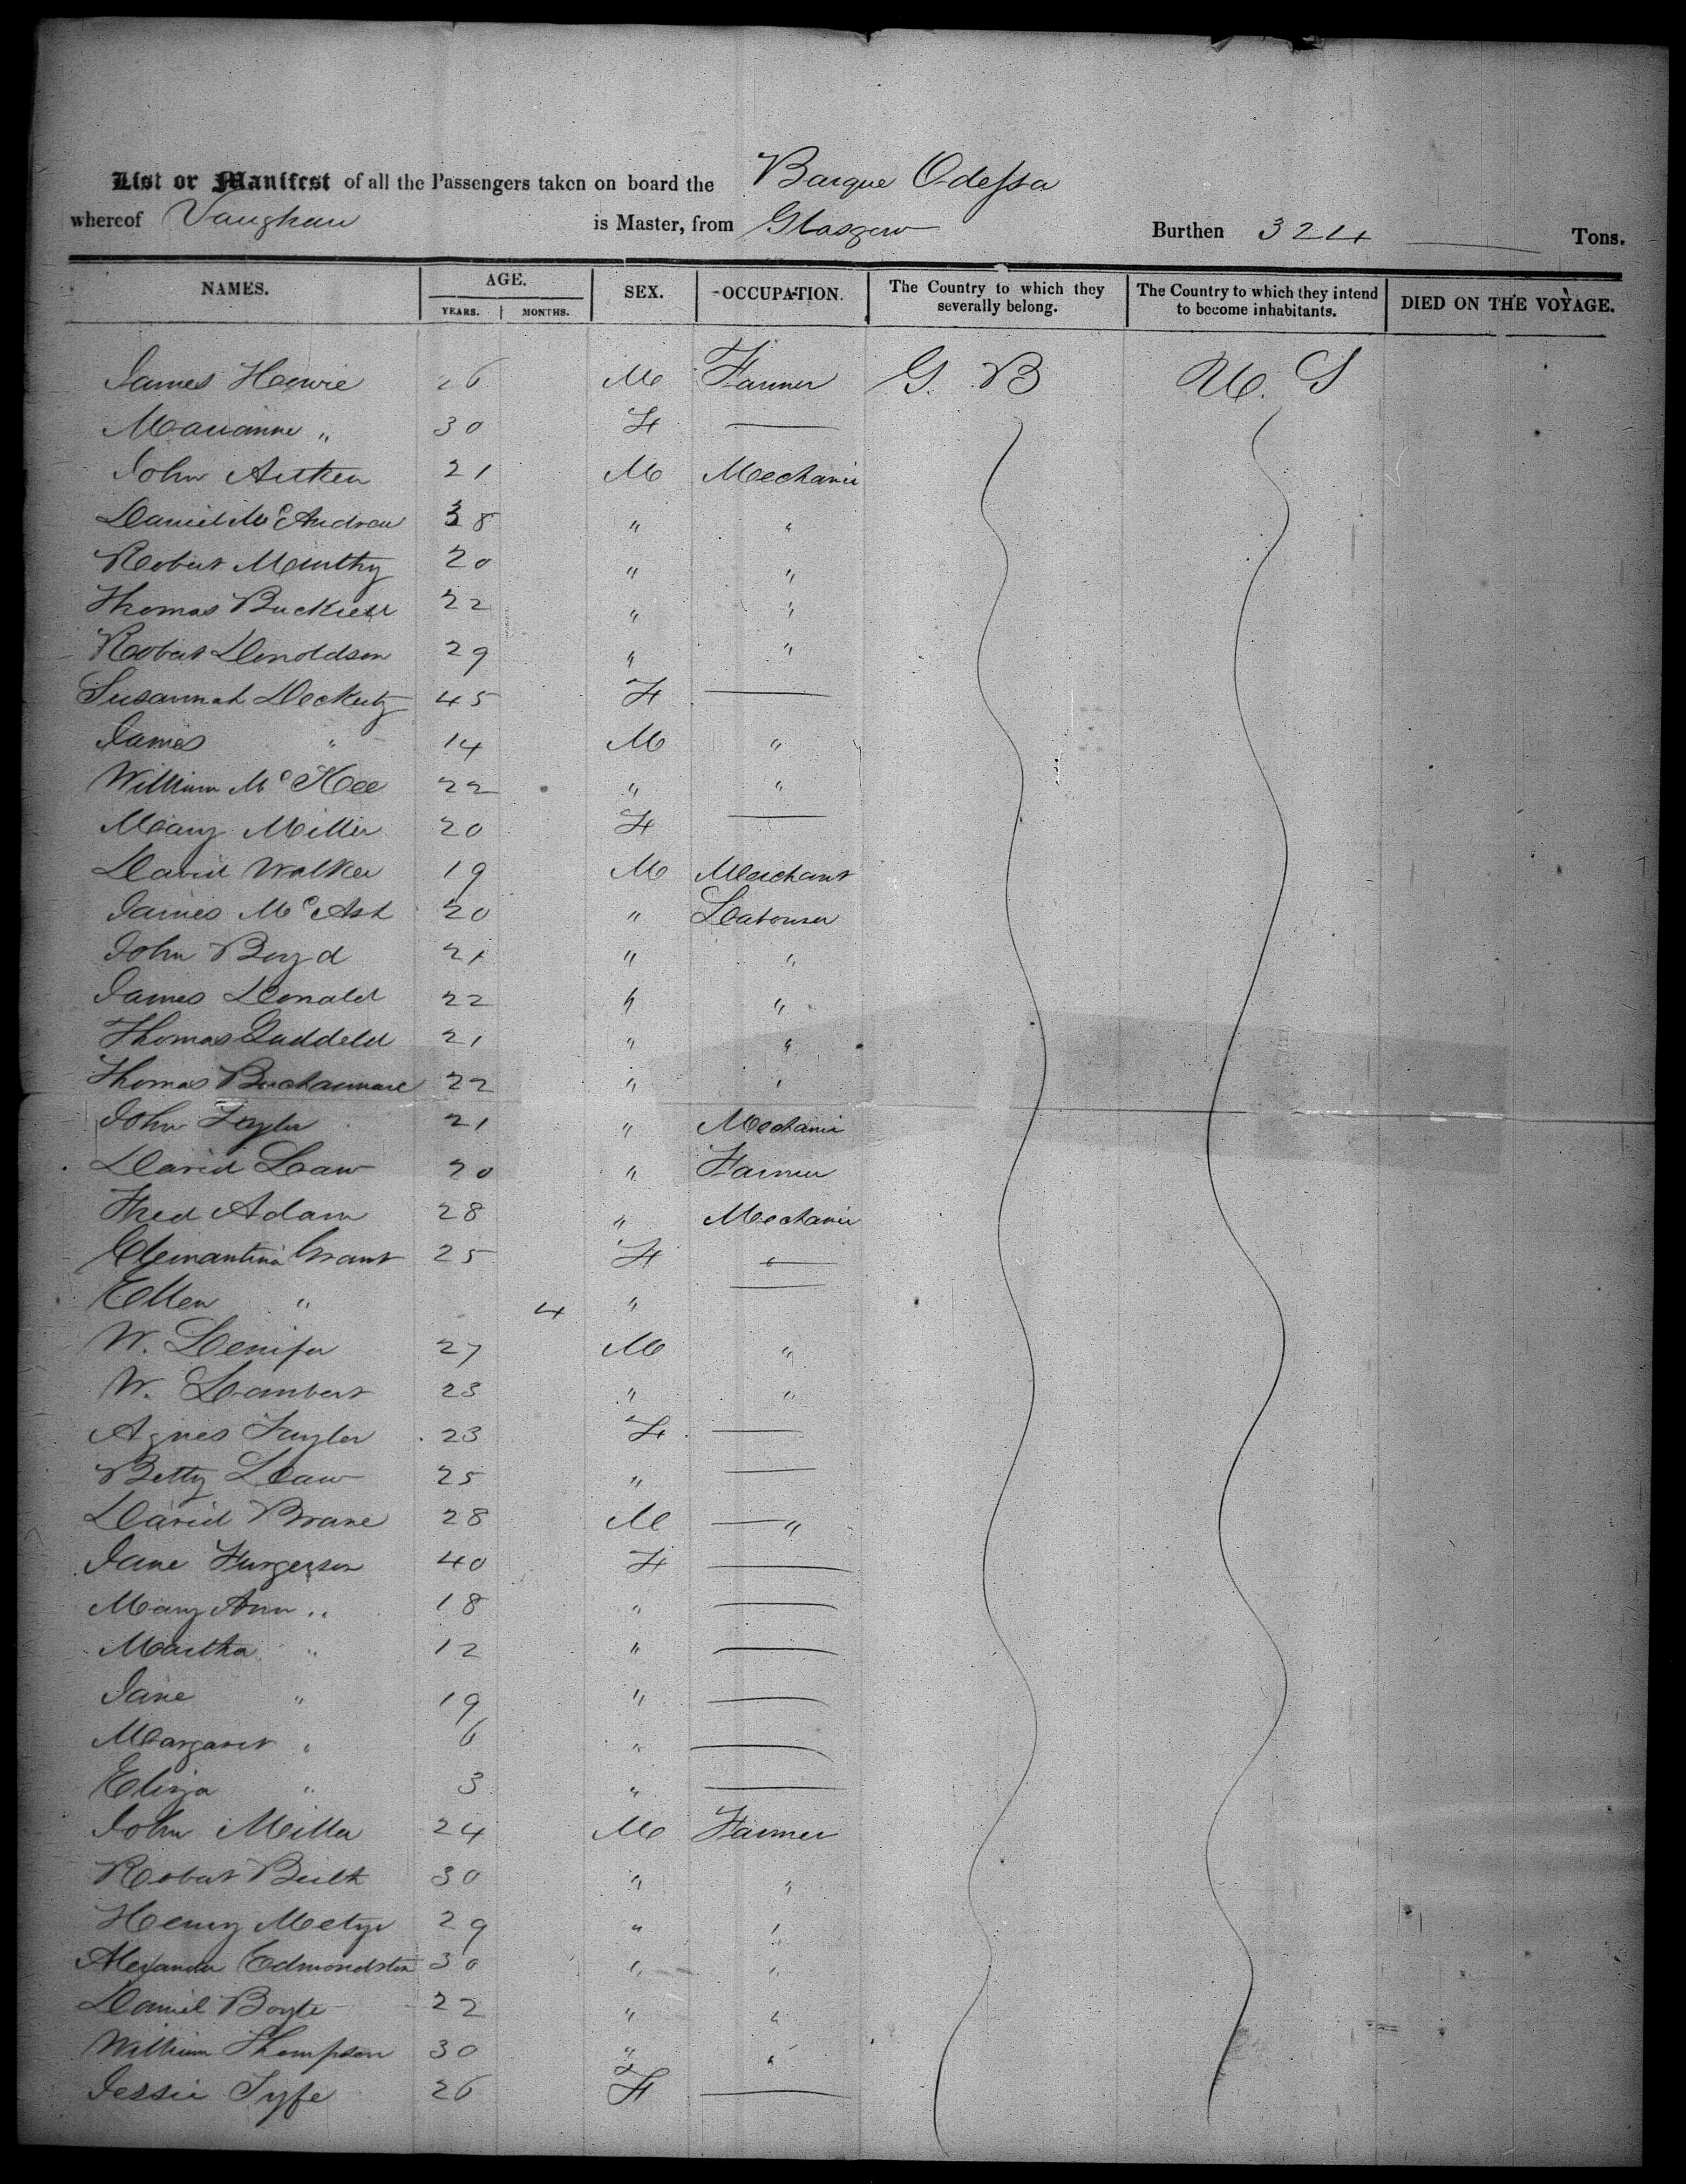 List or Manifest of all the Passengers taken on board the Barque Odessa
whereof Vaughan is Master, from Glasgow Burthen 324 Tons.
NAMES. AGE. YEARS. MONTHS. SEX. OCCUPATION. The Country to which they severally belong. The Country to which they intend to become inhabitants. DIED ON THE VOYAGE.
James Howie 26 M Farmer G. B U. S
Marianne " 30 F —
John Aitken 21 M Mechanic
Daniel McAndrew 38 " "
Robert 20 " "
Thomas 22 " "
Robert Donoldson 29 " "
Susannah 45 F —
James " 14 M "
William McKee 22 " "
Mary Miller 20 F —
David Walker 19 M Merchant
James McAsh 20 " Labourer
John Boyd 21 " "
James Donald 22 " "
Thomas 21 " "
Thomas 22 " "
John Taylor 21 " Mechanic
David Law 20 " Farmer
Fred Adam 28 " Mechanic
Clemantina Grant 25 F —
Ellen " 4 " —
W. 27 M "
W. Lambert 23 " "
Agnes Taylor 23 F —
Betty Law 25 " —
David 28 M — "
Jane Furgerson 40 F —
Mary Ann " 18 " —
Martha " 12 " —
Jane " 19 " —
Margaret " 6 " —
Eliza " 3 " —
John Miller 24 M Farmer
Robert 30 " "
Henry 29 " "
Alexander Edmondston 30 " "
Daniel Boyle 22 " "
William Thompson 30 " "
Jessie Fyfe 26 F —